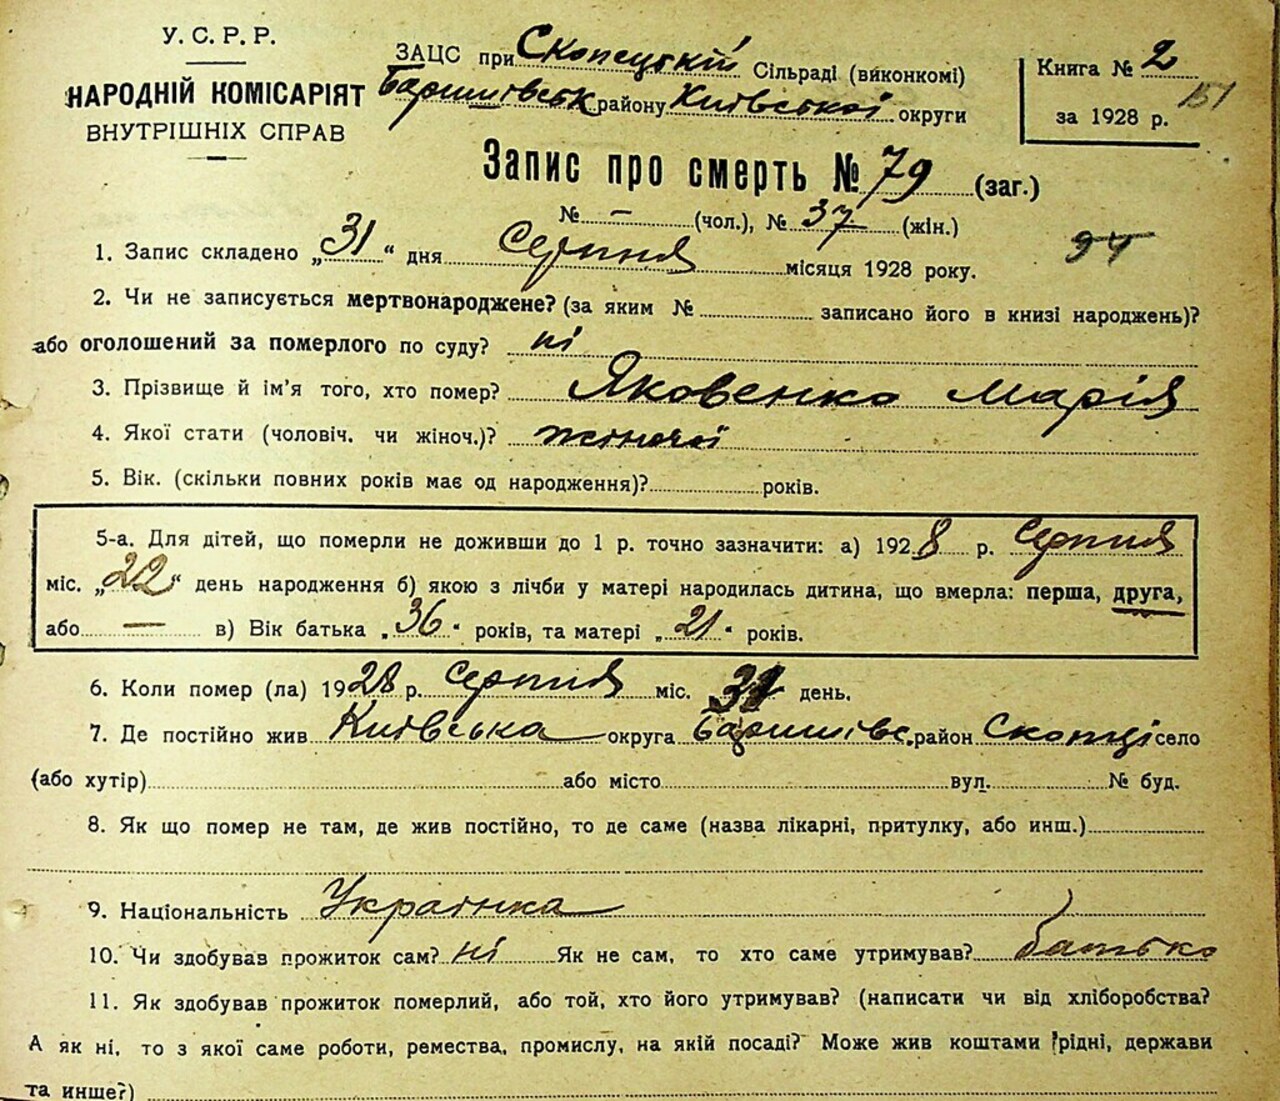 У. С. Р. Р.
НАРОДНІЙ КОМІСАРІЯТ
ВНУТРІШНІХ СПРАВ
ЗАЦС при Скопецькій Сільраді (виконкомі)
Баришівськ району Київської округи
Книга № 2
151
за 1928 р.
Запис про смерть № 79 (заг.)
№ – (чол.), № 37 (жін.)
94
1. Запис складено „31“ дня Серпня місяця 1928 року.
2. Чи не записується мертвонароджене? (за яким № записано його в книзі народжень)?
або оголошений за померлого по суду? ні
3. Прізвище й ім’я того, хто помер? Яковенко Марія
4. Якої стати (чоловіч. чи жіноч.)? жіночої
5. Вік. (скільки повних років має од народження)? років.
5-а. Для дітей, що померли не доживши до 1 р. точно зазначити: а) 1928 р. Серпня
міс. „22“ день народження б) якою з лічби у матері народилась дитина, що вмерла: перша, друга,
або — в) Вік батька „36“ років, та матері „21“ років.
6. Коли помер (ла) 1928 р. Серпня міс. 31 день.
7. Де постійно жив Київська округа Баришівс. район Скопці село
(або хутір) або місто вул. № буд.
8. Як що помер не там, де жив постійно, то де саме (назва лікарні, притулку, або инш.)
9. Національність Українка
10. Чи здобував прожиток сам? ні Як не сам, то хто саме утримував? батько
11. Як здобував прожиток померлий, або той, хто його утримував? (написати чи від хліборобства?
А як ні, то з якої саме роботи, ремества, промислу, на якій посаді? Може жив коштами рідні, держави
та инше?)